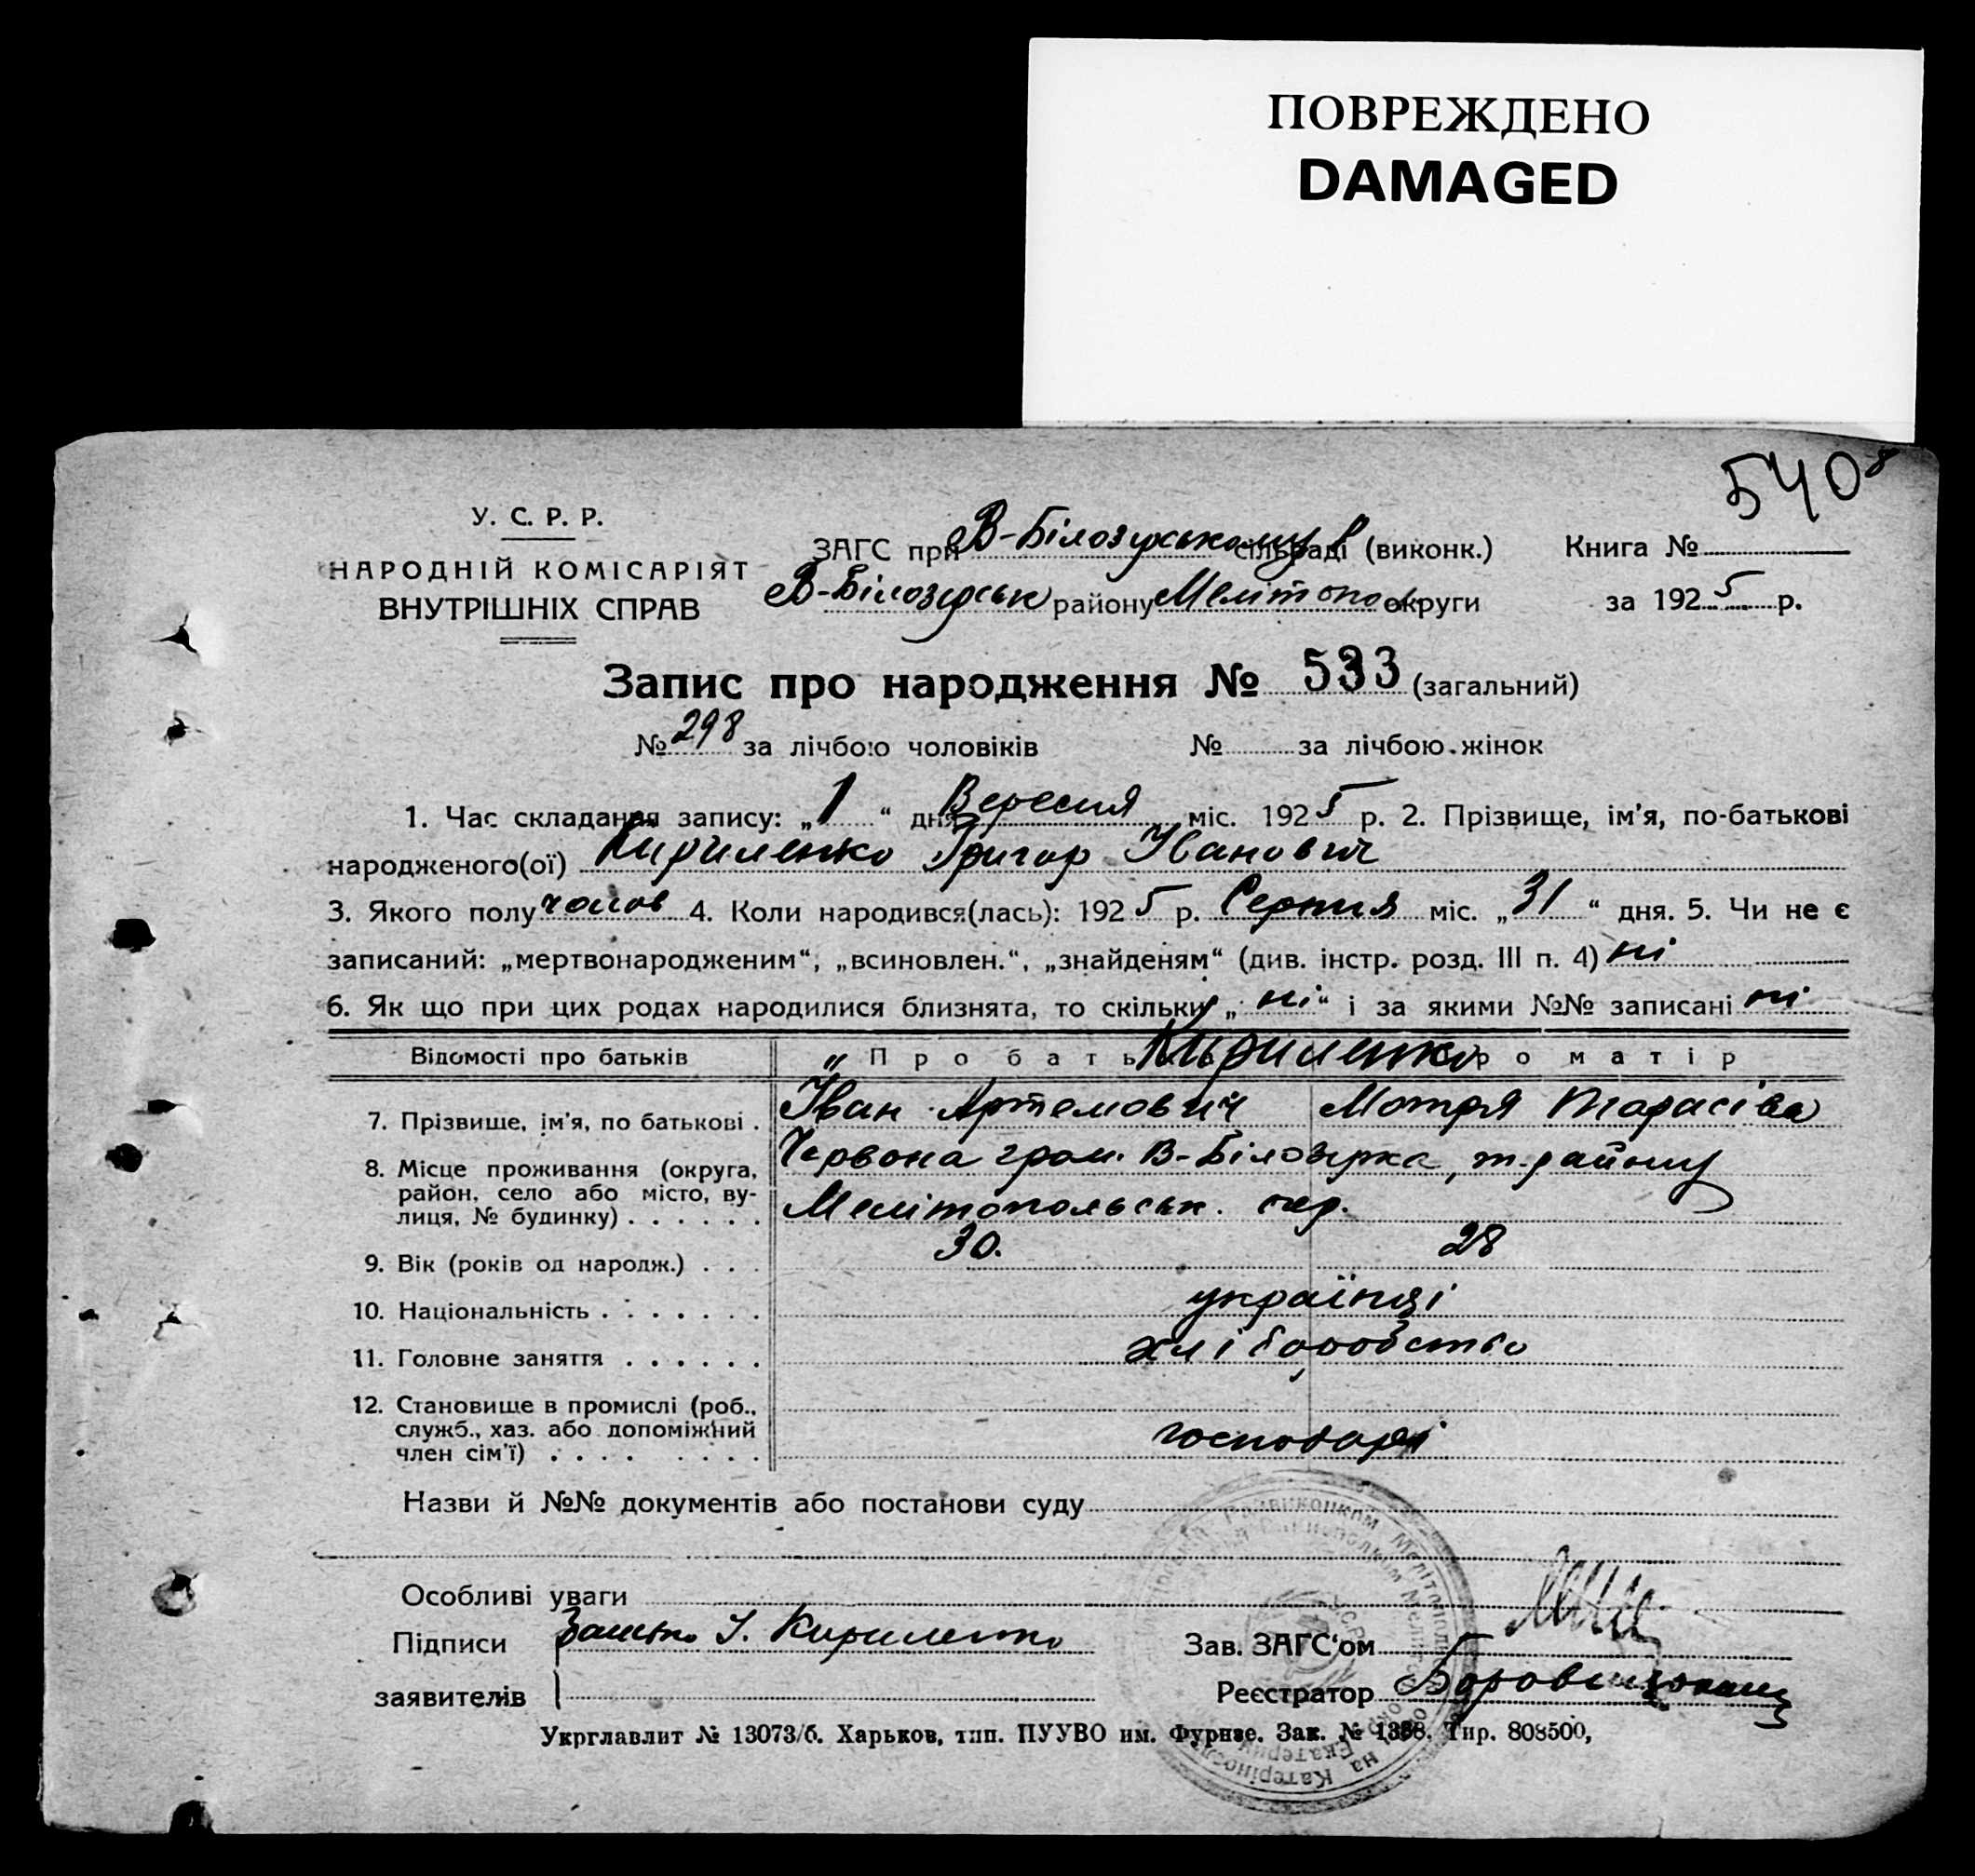 ПОВРЕЖДЕНО
DAMAGED
540
У. С. Р. Р.
НАРОДНІЙ КОМІСАРІЯТ
ВНУТРІШНІХ СПРАВ
ЗАГС при В-Білозерському сільраді (виконк.) Книга №
В-Білозерськ району Мелітопо округи за 1925 р.
Запис про народження № 533 (загальний)
№ 298 за лічбою чоловіків № за лічбою жінок
1. Час складання запису: „1“ дня Вересня міс. 1925 р. 2. Прізвище, ім'я, по-батькові
народженого(ої) Кириленко Григор Іванович
3. Якого полу чолов 4. Коли народився(лась): 1925 р. Серпня міс. „31“ дня. 5. Чи не є
записаний: „мертвонародженим“, „всиновлен.“, „знайденям“ (див. інстр. розд. III п. 4) ні
6. Як що при цих родах народилися близнята, то скільки „ні“ і за якими №№ записані ні
Відомості про батьків Про батька Кириленко Про матір
7. Прізвище, ім'я, по батькові . Іван Артемович Мотря Тарасівa
8. Місце проживання (округа, Червона гром. В-Білозірка, т. району
район, село або місто, ву-
лиця, № будинку) . . . . . . Мелітопольськ. окр.
9. Вік (років од народж.) . . . 30. 28
10. Національність . . . . . . . українці
11. Головне заняття . . . . . . хліборобство
12. Становище в промислі (роб.,
служб., хаз. або допоміжний
член сім'ї) . . . . . . . . господарі
Назви й №№ документів або постанови суду
Особливі уваги
Підписи І. Кириленко Зав. ЗАГС'ом
заявителів Реєстратор
Укрглавлит № 13073/б. Харьков, тип. ПУУВО им. Фурнзе. Зак. № 1358. Тир. 808500,